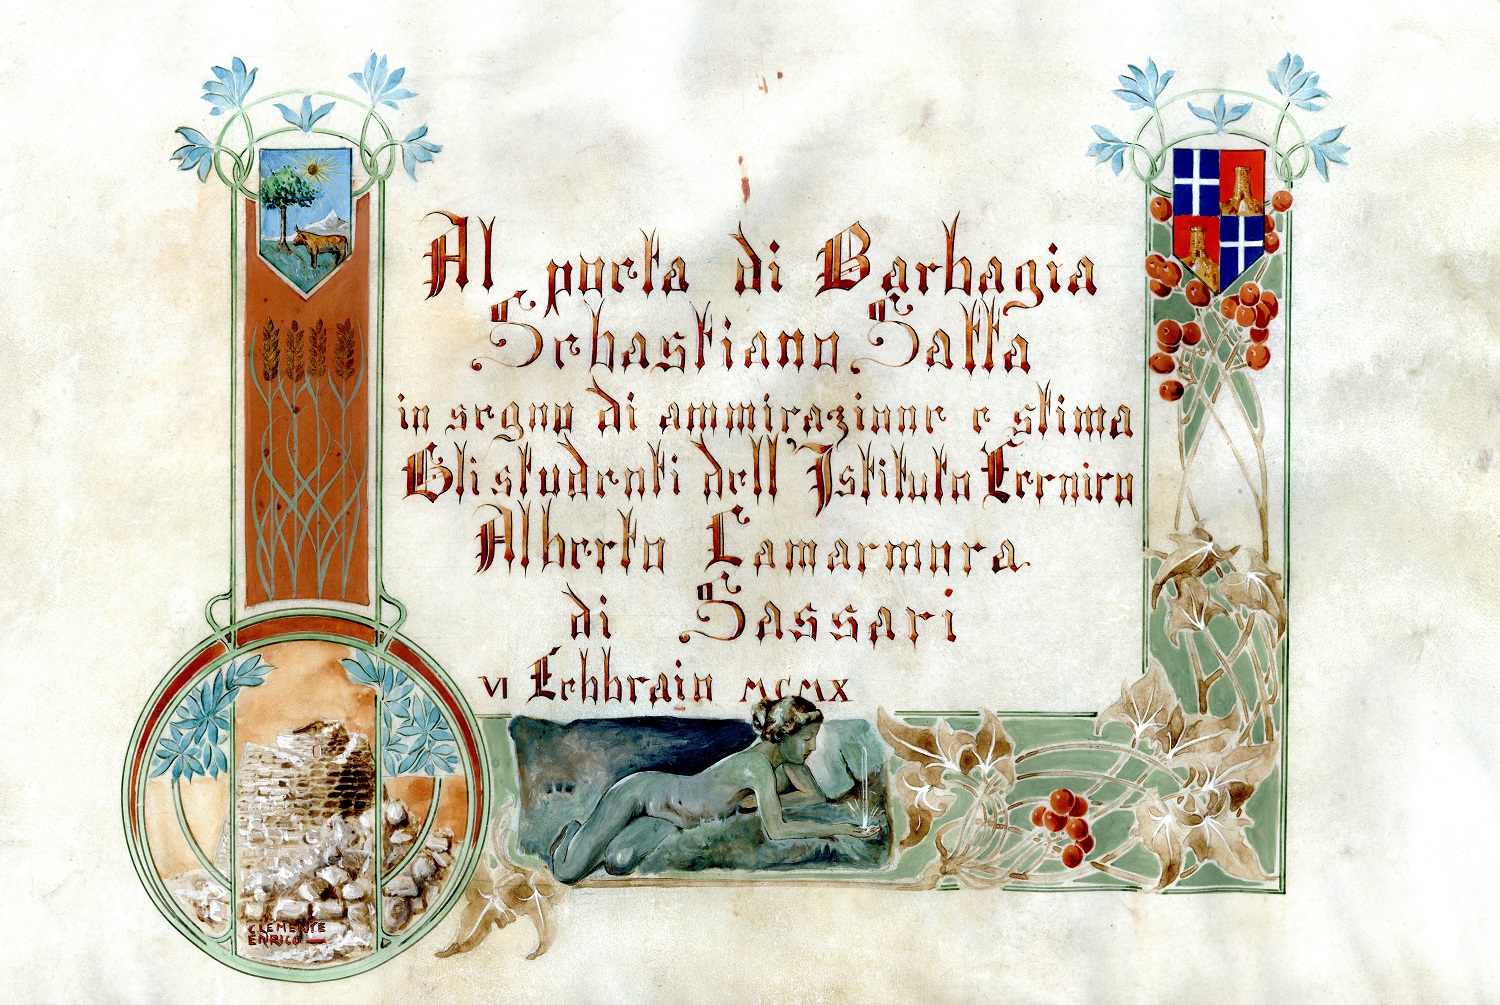 Al poeta di Barbagia
Sebastiano Satta
in segno di ammirazione e stima
Gli studenti dell'Istituto Tecnico
Alberto Lamarmora
di Sassari
VI Febbraio MCMX
CLEMENTE
ENRICO